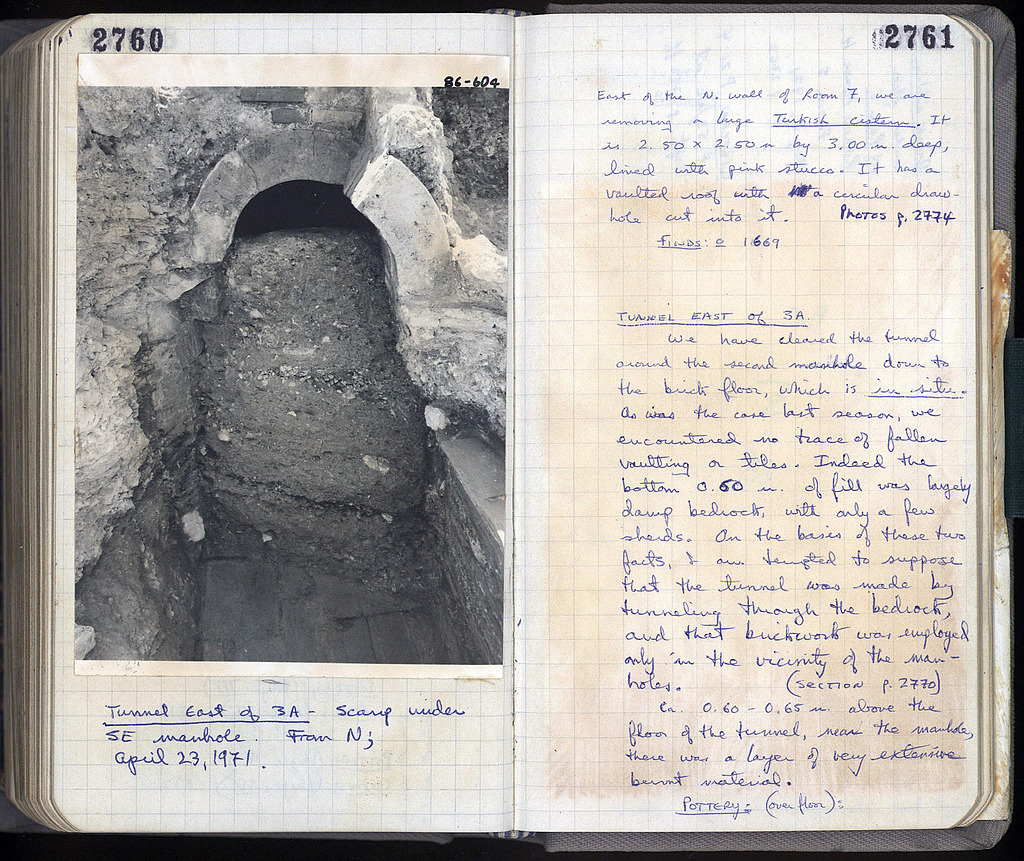 2760
86-604
Tunnel East of 3A - Scarp under
SE manhole. From N;
April 23, 1971.
2761
East of the N. wall of Room 7, we are
removing a large Turkish cistern. It
is 2.50 x 2.50 m by 3.00 m. deep,
lined with pink stucco. It has a
vaulted roof with a circular draw-
hole cut into it. Photos p. 2774
Finds: 1669
TUNNEL EAST of 3A.
We have cleared the tunnel
around the second manhole down to
the brick floor, which is in situ.
As was the case last season, we
encountered no trace of fallen
vaulting or tiles. Indeed the
bottom 0.60 m. of fill was largely
damp bedrock, with only a few
sherds. On the basis of these two
facts, I am tempted to suppose
that the tunnel was made by
tunneling through the bedrock,
and that brickwork was employed
only in the vicinity of the man-
holes. (SECTION p. 2770)
Ca. 0.60 - 0.65 m. above the
floor of the tunnel, near the manhole,
there was a layer of very extensive
burnt material.
POTTERY: (over floor):